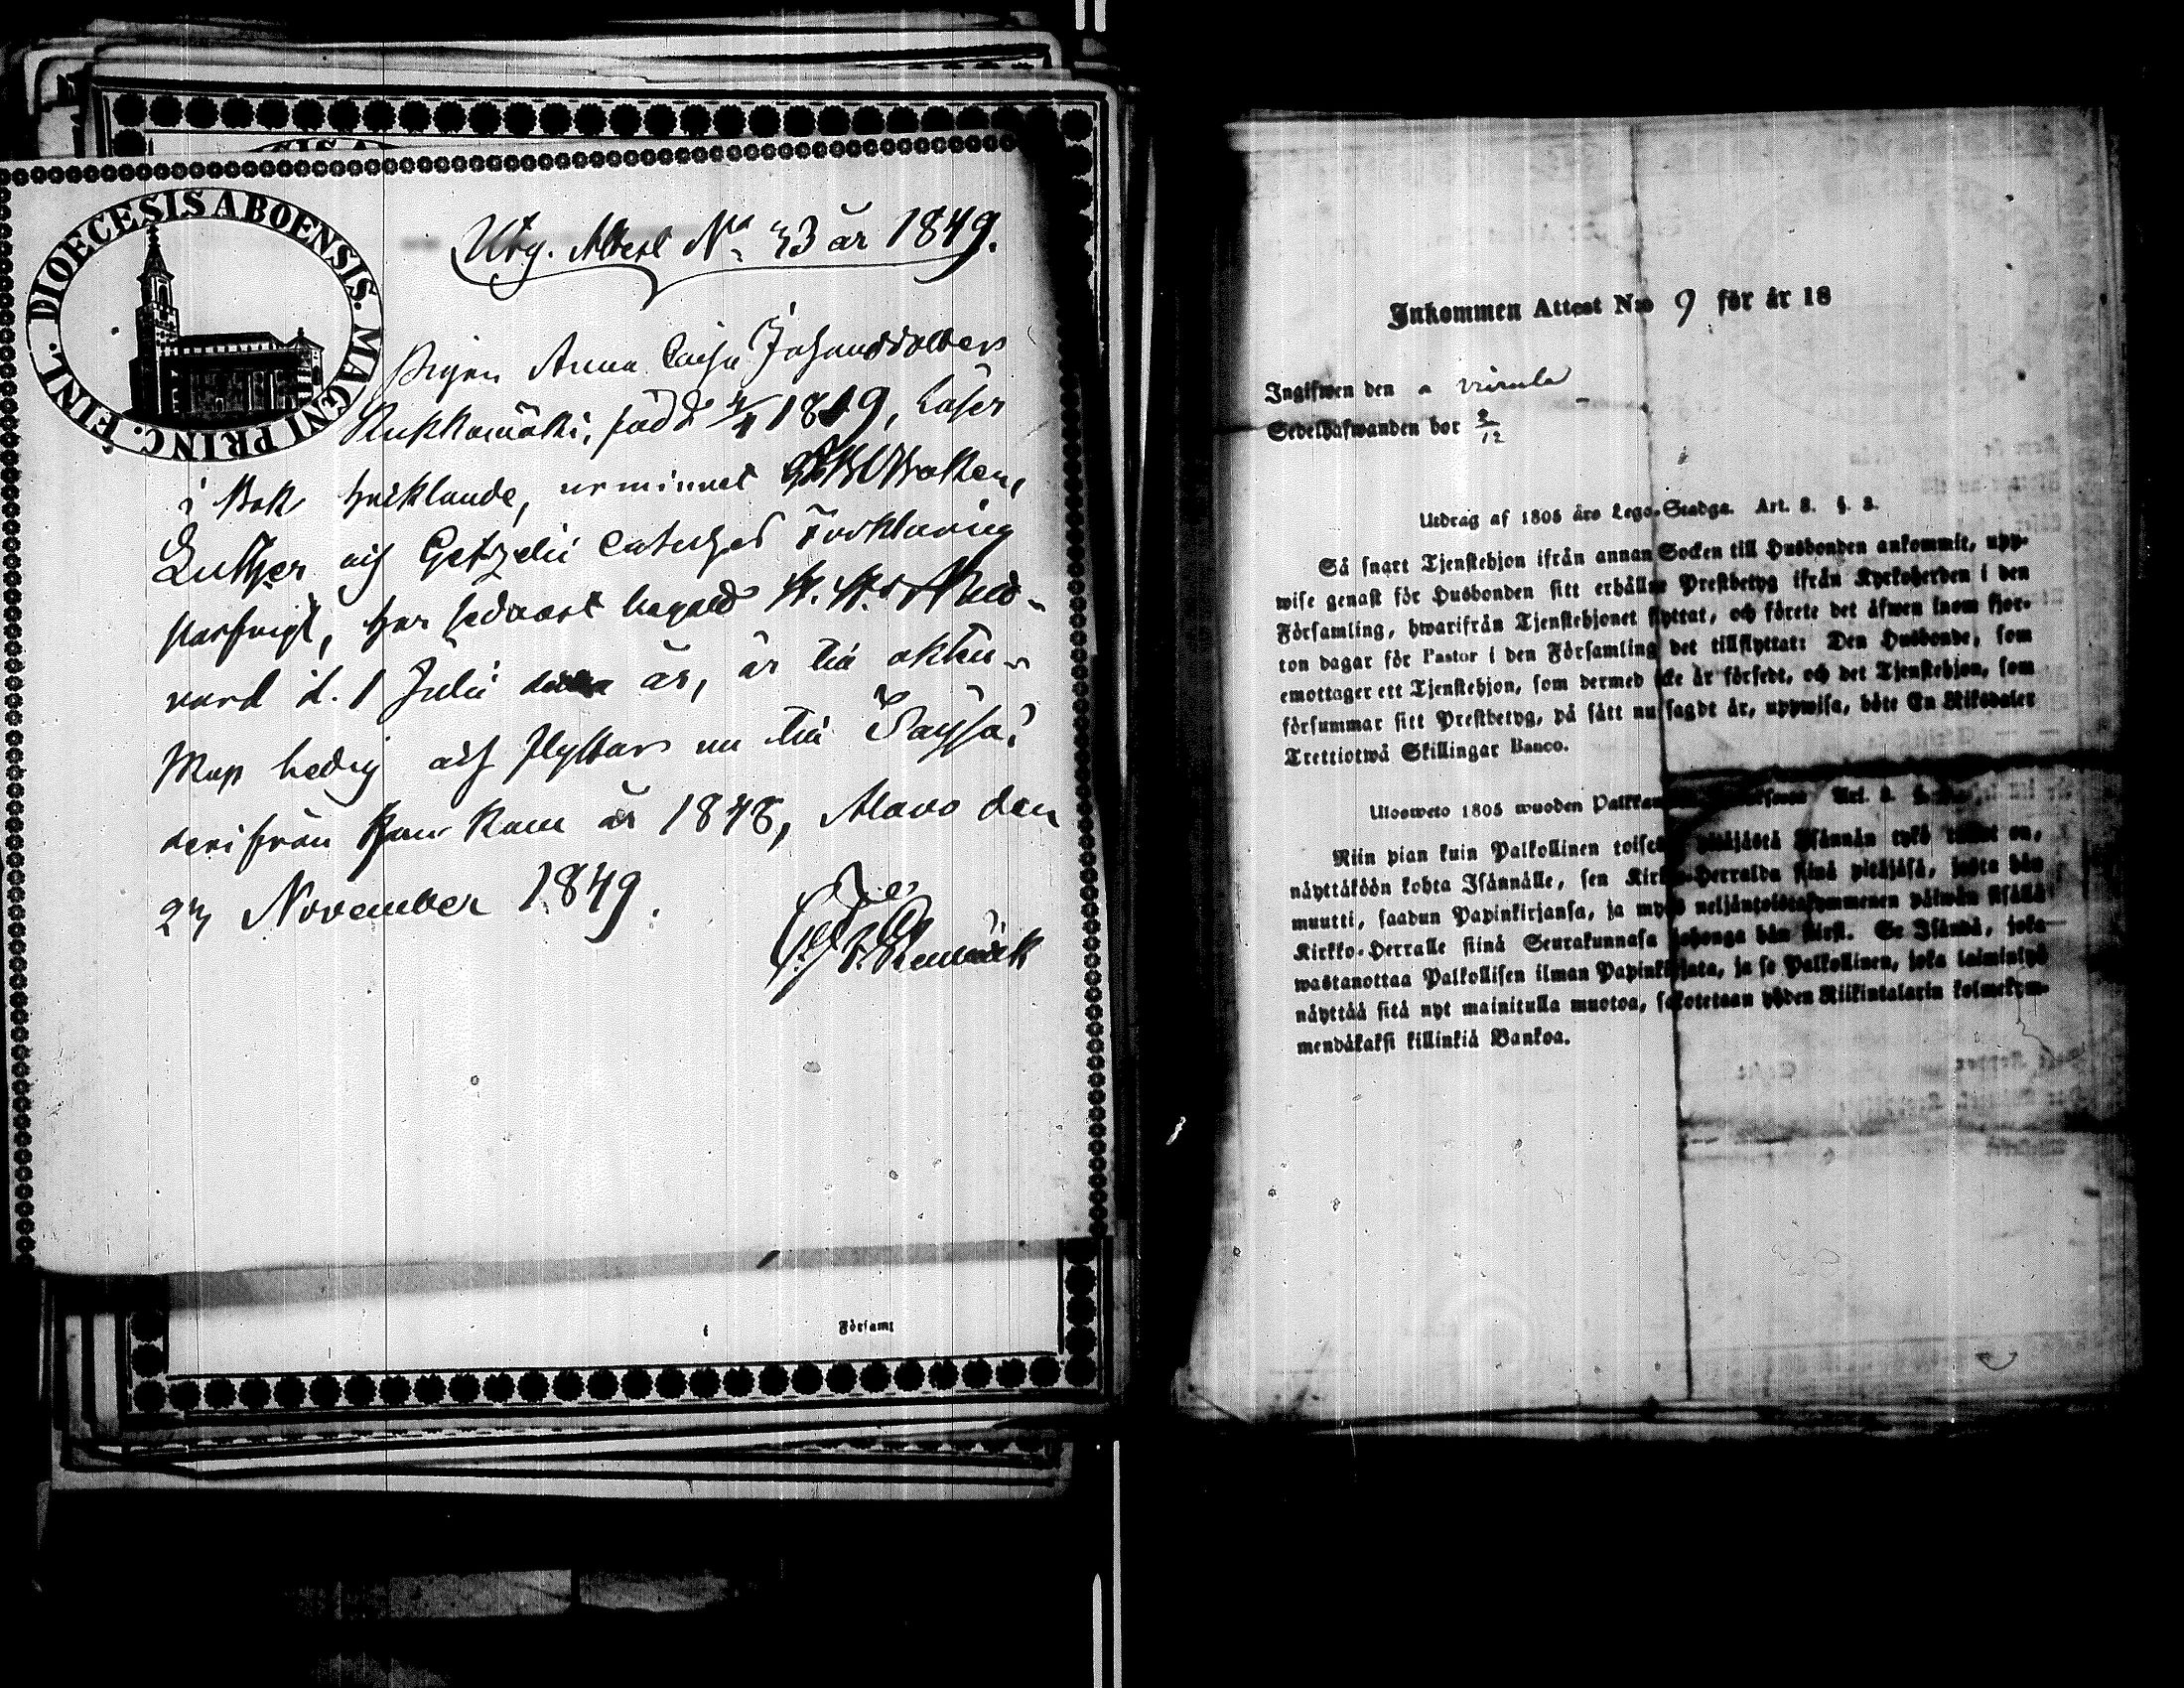 DIOECESIS ABOENSIS. MAGNI PRINC. FINL.
Utg. Attest No 33 år 1849.
Pigan Anna Caisa Johansdotter
Kukkamäki, född 4/4 1819, Läser
i Bok hvicklande, ur minnet
Luther och Getzelii Cateches Förklaring
försvarligt, har sednast begådt H. H. Natt-
vard d. 1 Julii år, är till äkten-
skap ledig och flyttar nu till
derifrån hon kom år 1848, Alavo den
27 November 1849.
Församl
Inkommen Attest N:o 9 för år 18
Ingifwen den
Sedelhafwanden bor 2/12
Utdrag af 1805 års Lego-Stadga. Art. 8. §. 3.
Så snart Tjenstehjon ifrån annan Socken till Husbonden ankommit, upp-
wise genast för Husbonden sitt erhållne Prestbetyg ifrån Kyrkoherden i den
Församling, hwarifrån Tjenstehjonet flyttat, och förete det åfwen inom fjor-
ton dagar för Pastor i den Församling det tillflyttat: Den Husbonde, som
emottager ett Tjenstehjon, som dermed icke är försedt, och det Tjenstehjon, som
försummar sitt Prestbetyg, på sätt nu sagdt är, uppwisa, böte En Riksdaler
Trettiotwå Skillingar Banco.
Ulosweto 1805 wuoden Art.
Niin pian kuin Palkollinen toisesta pitäjästä Isännän tykö tullut on,
näyttäköön kohta Isännälle, sen Kirkko-Herralda siinä pitäjäsä, josta hän
muutti, saadun Papinkirjansa, ja myös neljäntoistakymmenen päiwän sisällä
Kirkko-Herralle siinä Seurakunnasa johonga hän siirsi. Se Isändä, joka
wastanottaa Palkollisen ilman Papinkirjata, ja se Palkollinen, joka laiminlyö
näyttää sitä nyt mainitulla muotoa, sakotetaan yhden Riikintalarin kolmekym-
mendäkaksi killinkiä Bankoa.